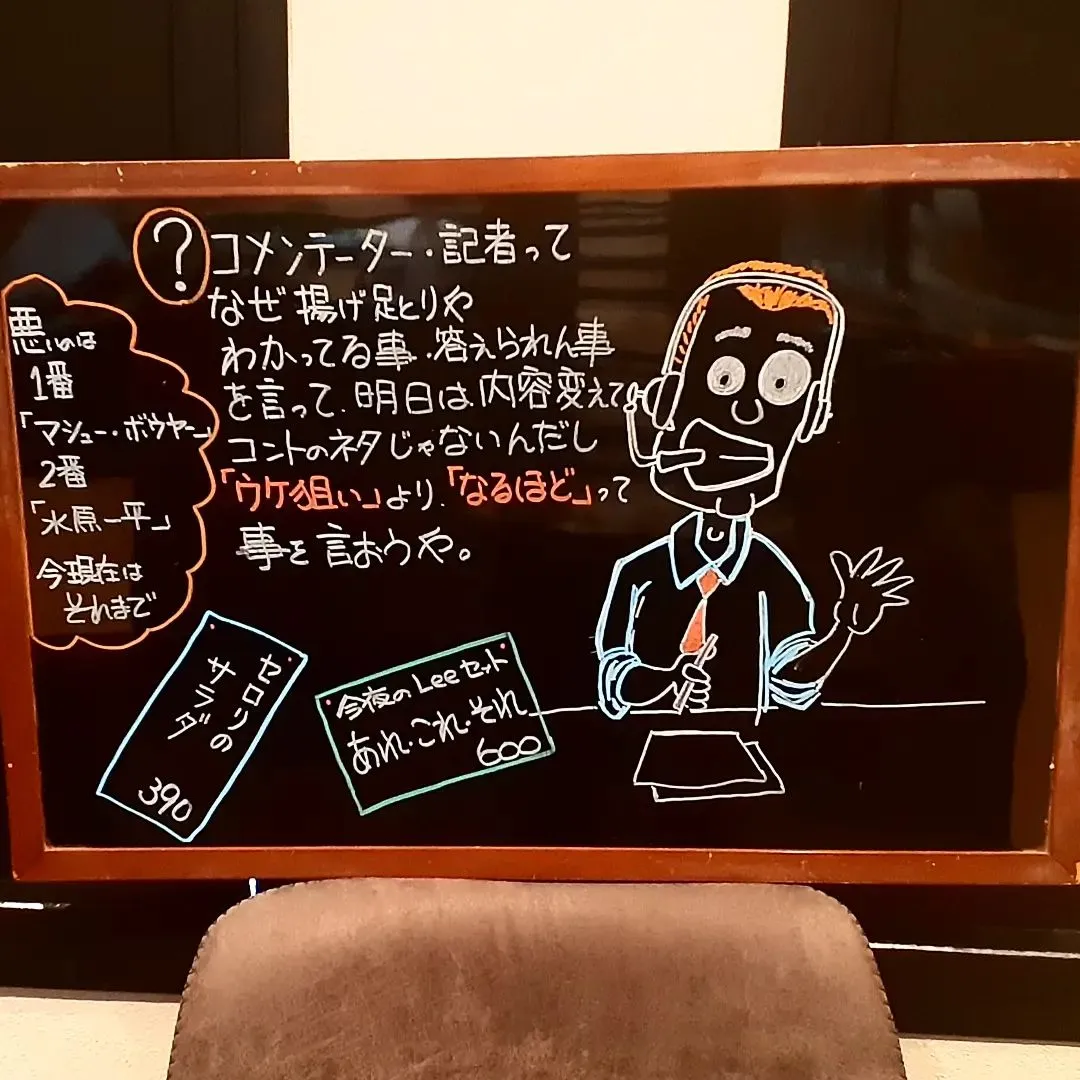 ?
コメンテーター・記者って
なぜ揚げ足とりや
わかってる事・答えられん事
を言って、明日は内容変えて
コントのネタじゃないんだし
「ウケ狙い」より、「なるほど」って
事を言おうや。
悪いのは
1番
「マシュー・ボウヤー」
2番
「水原一平」
今現在は
それまで
セロリの
サラダ
390
今夜のLeeセット
あれ・これ・それ
600